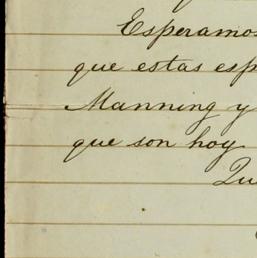 Esperamos
que estas esp
Manning y
que son hoy
Qu